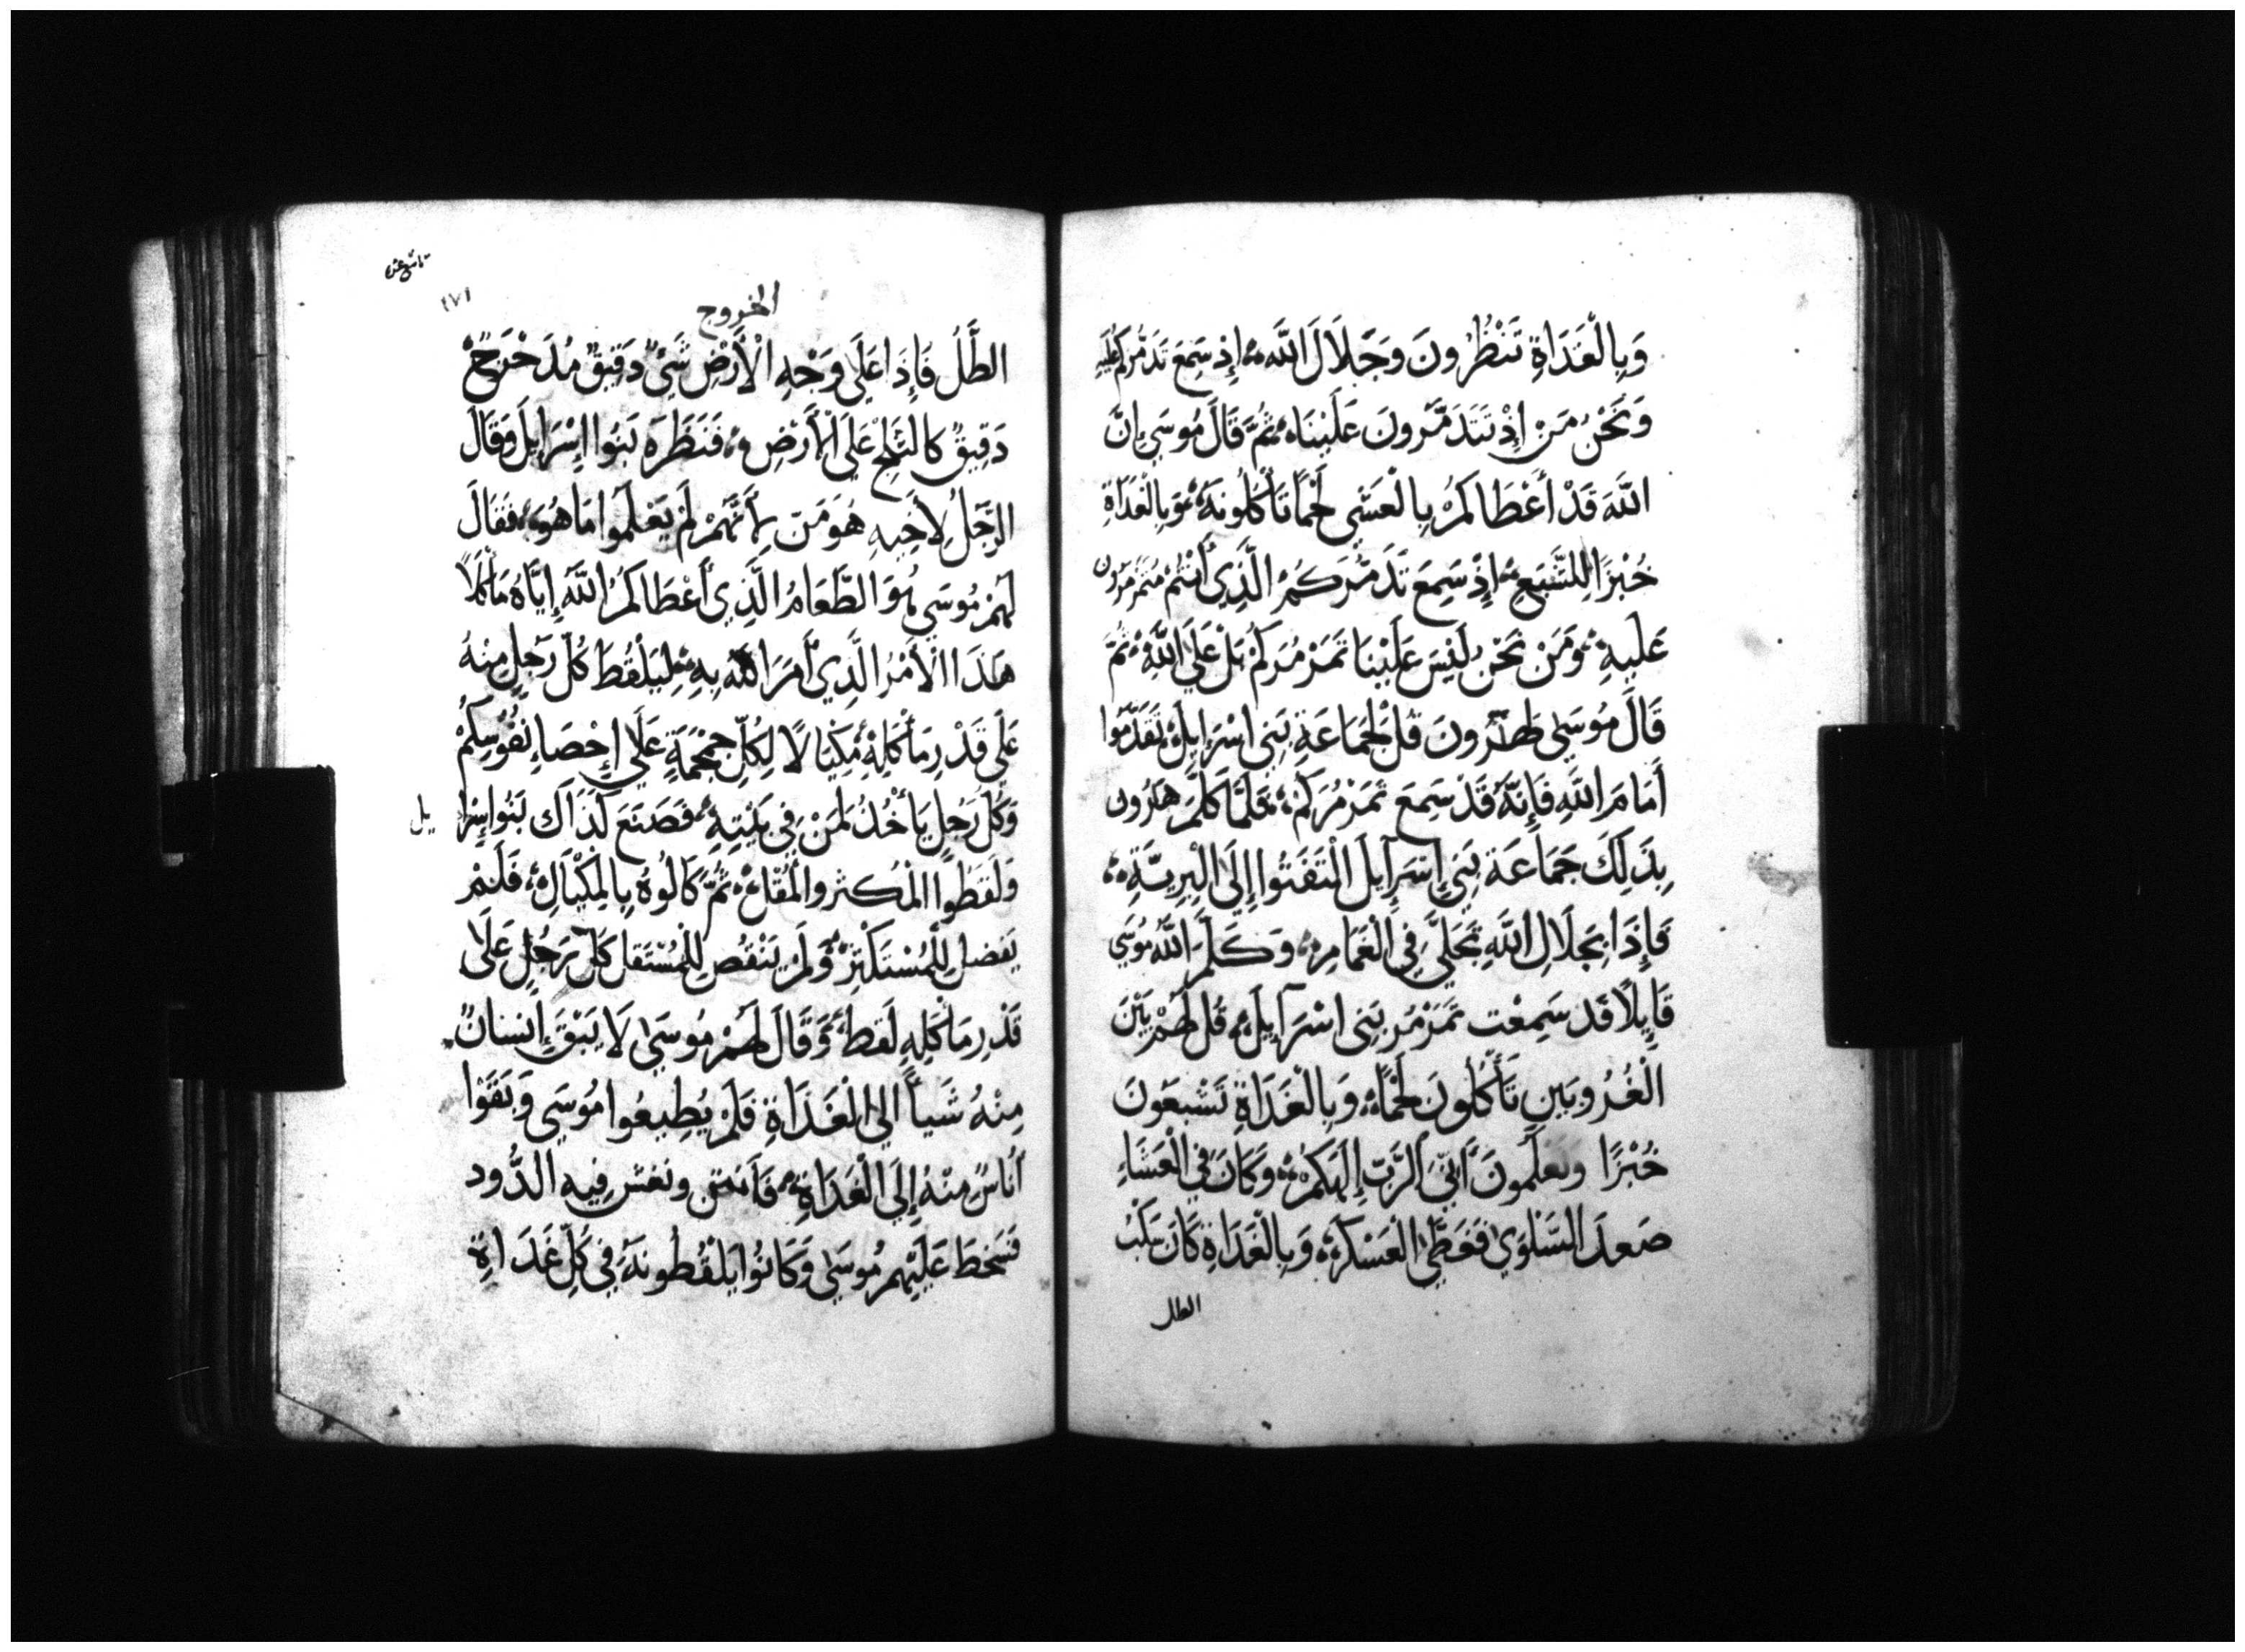 وَبِالْغَدَاةِ تَنْظُرُونَ وَجَلَالَ اللَّهِ إِذ سَمِعَ تَذَمُّرَكُم عَلَيهِ
وَنَحْنُ مَنْ إِذْ تَتَذَمَّرُونَ عَلَيْنَا ثُمَّ قَالَ مُوسَي إِنَّ
اللَّهَ قَدْ أَعْطَاكُمْ بِالْعَشِي لَحْمًا تَأْكُلُونَهُ وَبِالْغَدَاةِ
خُبْزًا لِلشَّبَعِ إِذْ سَمِعَ تَذَمُّرَكُمْ الَّذِي أَنْتُمْ مُتَمَرْمِرُون
عَلَيهِ وَمَنْ نَحْنُ لَيْسَ عَلَيْنَا تَمَرْمُرَكُمْ بَلْ عَلَي اللَّهِ ثُمَّ
قَالَ مُوسَي لِهَرُونَ قُلْ لِجَمَاعَةِ بَنِي اسْرَايِلَ تَقَدَّمُوا
أَمَامَ اللَّهِ فَإِنَّهُ قَدْ سَمِعَ تَمَرْمُرَكُمْ فَلَمَّا كَلَّمَ هَرُون
بِذَلِكَ جَمَاعَة بَنِي إِسْرَايِلَ الْتَفَتُوا إِلَي الْبَرِيَّةِ
فَإِذَا بِجَلَالِ اللَّهِ تَجَلَّي فِي الْغَمَامِ وَكَلَّمَ اللَّهُ مُوسَي
قَايِلًا قَد سَمِعْت تَمَرْمُر بَنِي اسْرَايِلَ قُل لَهُمْ بَيْنَ
الْغُرُوبَينِ تَأْكُلُونَ لَحْمًا وَبِالْغَدَاةِ تَشْبَعُونَ
خُبْزًا وتَعلَمُونَ أَنِّي الرَّبّ إِلَهَكُمْ وَكَانَ فِي الْعَشَاءِ
صَعِدَ السَّلْوَي فَغَطَّي الْعَسْكَرَ وَبِالْغَدَاةِ كَانَ سَكْبُ
الطل
الخروج
١٧١
الطَّلُ فَإِذَا عَلَي وَجْهِ الْأَرْضِ شَيْ دَقِيقٌ مُدَحْرَجٌ
دَقِيقٌ كَالثَّلْجِ عَلَي الْأَرْضِ فَنَظَرَهُ بَنُوا إِسْرَايِلَ وَقَالَ
الرَّجُلُ لِأَخِيهِ هُوَ مَنّ لِأَنَّهُمْ لَمْ يَعْلَمُوا مَا هُوَ فَقَالَ
لَهُمْ مُوسَي هُوَ الطَّعَامُ الَّذِي أَعْطَاكُمُ اللَّهُ إِيَّاهُ مَأْكَلًا
هَذَا الْأَمْرُ الَّذِي أَمَرَ اللَّهُ بِهِ لِيَلْقُطَ كُلّ رَجُلٍ مِنْهُ
عَلَي قَدْرِ مَأْكَلِهِ مِكْيَالًا لِكُلِّ جُمْجُمَةٍ عَلَي إِحْصَاءِ نُفُوسِكُمْ
وَكُلّ رَجُلٍ يَأْخُذُ لِمَنْ فِي بَيْتِهِ فَصَنَعَ كَذَاكَ بَنُوا إِسْرَايل
وَلَقَطُوا الْمُكثر والْمُقِلّ ثُمَّ كَالُوهُ بِالْمِكْيَالِ فَلَمْ
يَفضل لِلْمُسْتَكْثِرِ وَلَمْ يَنْقُص لِلْمُسْتَقِل كُلّ رَجُلٍ عَلَي
قَدْرِ مَأْكَلِهِ لَقَطَ وَقَالَ لَهُمْ مُوسَي لَا يَبْقِ إِنسَانٌ
مِنْهُ شَيأً الي الْغَدَاةِ فَلَمْ يُطِيعُوا مُوسَي وَبَقَوْا
أُنَاسٌ مِنْهُ إِلَي الْغَدَاةِ فَأَنتن ونغش فِيهِ الدُّود
فَسَخِطَ عَلَيْهِم مُوسَي وَكَانُوا يَلْقُطُونَهُ فِي كُلِّ غَدَاةٍ